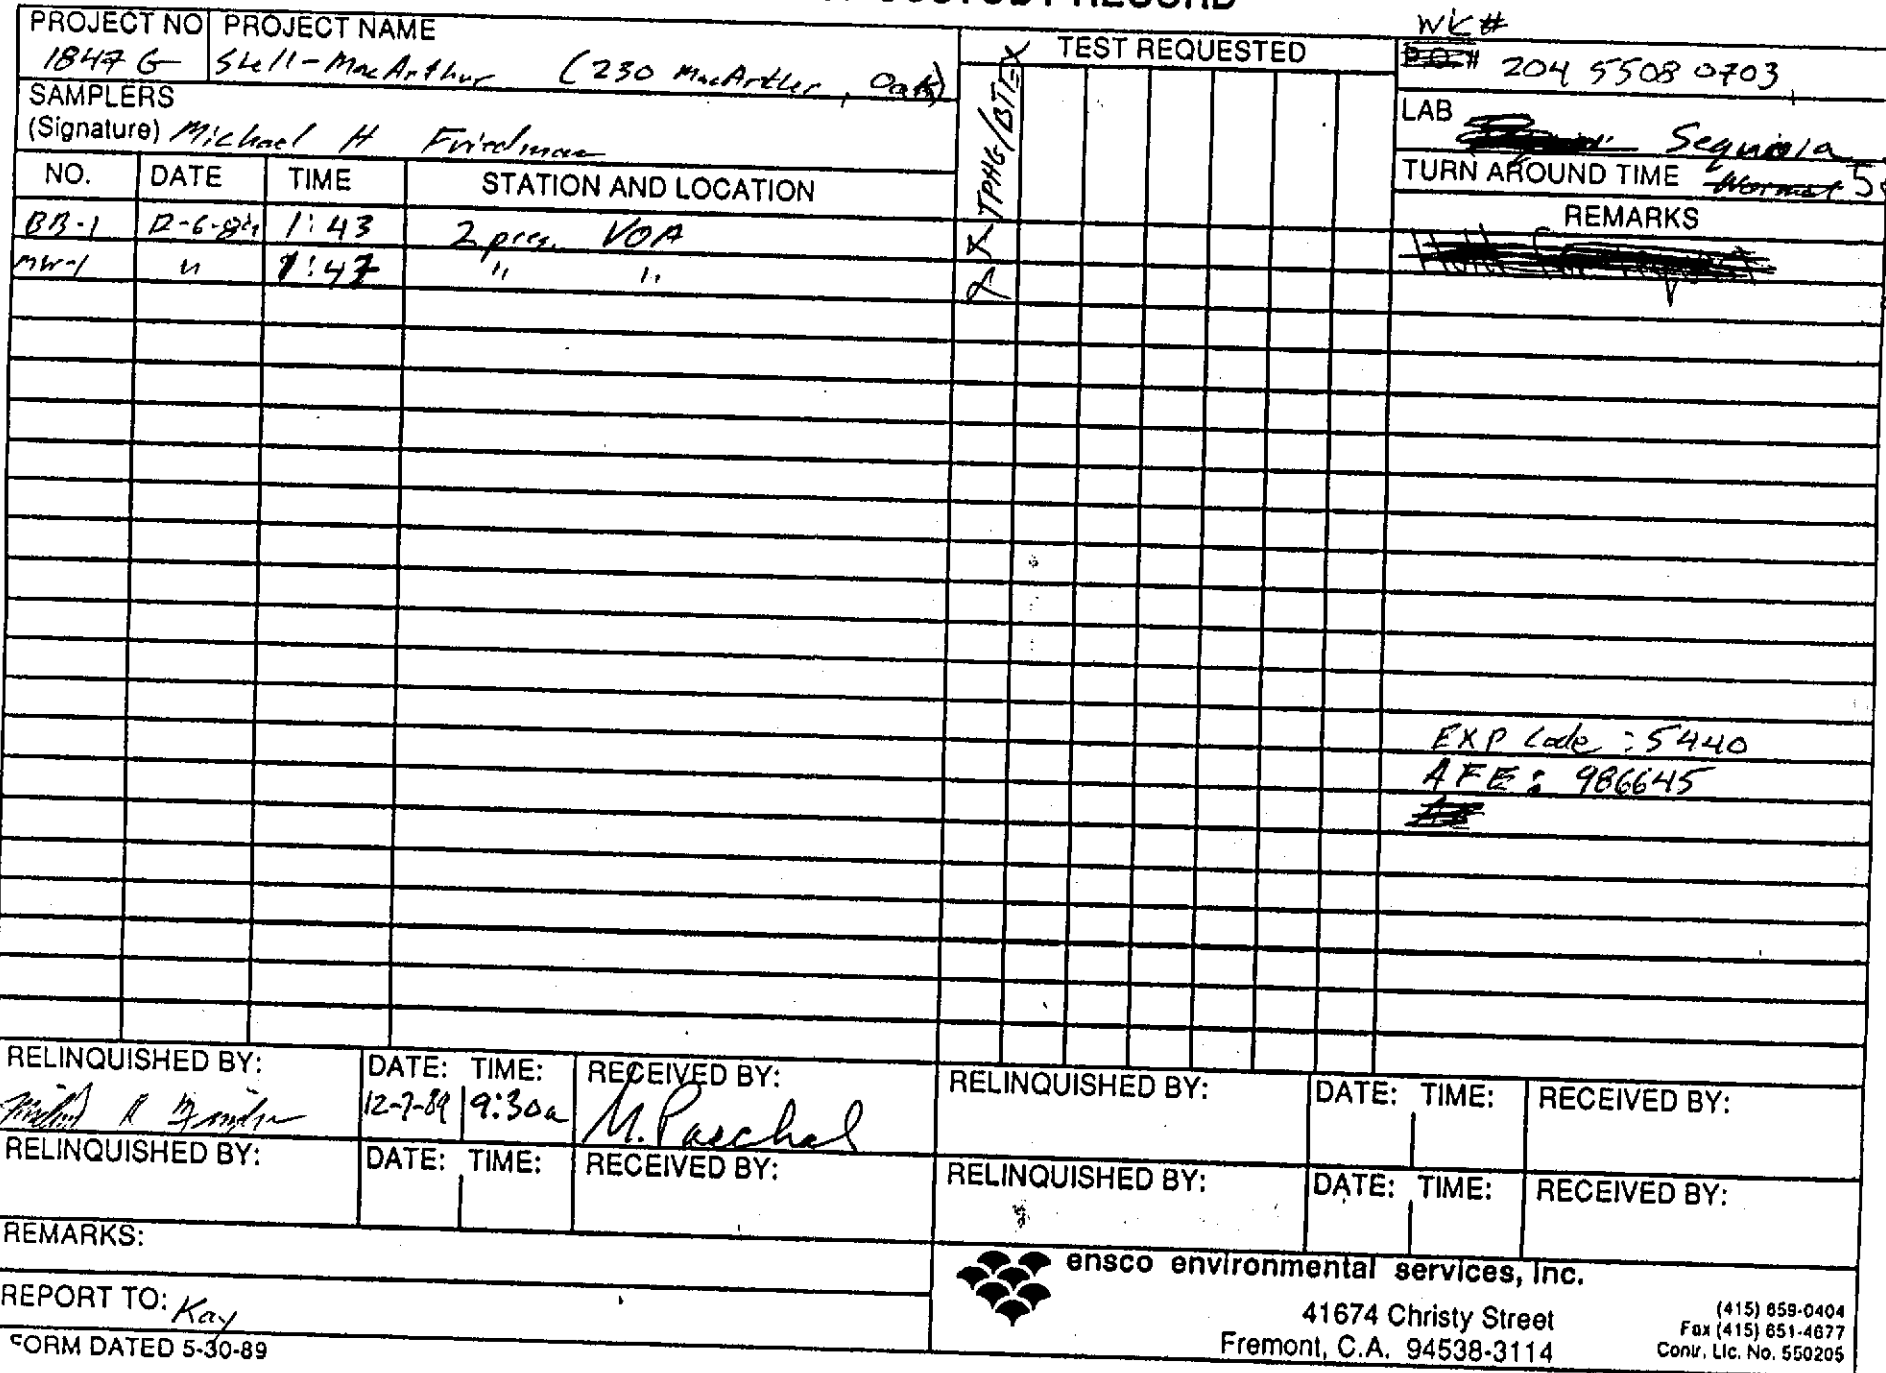 CUSTODY RECORD
PROJECT NO PROJECT NAME
1847 G Shell-MacArthur (230 MacArthur, Oak)
SAMPLERS
(Signature) Michael H Friedman
TEST REQUESTED
TPHG/BTEX
WK#
P.O.# 204 5508 0703
LAB Sequioia
TURN AROUND TIME Normal 5
NO. DATE TIME STATION AND LOCATION
REMARKS
BB-1 12-6-89 1:43 2 pres. VOA X
MW-1 " 1:47 " " X
EXP Code : 5440
AFE: 986645
RELINQUISHED BY: DATE: TIME: RECEIVED BY:
12-7-89 9:30a M. Paschal
RELINQUISHED BY: DATE: TIME: RECEIVED BY:
RELINQUISHED BY: DATE: TIME: RECEIVED BY:
RELINQUISHED BY: DATE: TIME: RECEIVED BY:
REMARKS:
REPORT TO: Kay
FORM DATED 5-30-89
ensco environmental services, inc.
41674 Christy Street
Fremont, C.A. 94538-3114
(415) 659-0404
Fax (415) 651-4677
Contr. Lic. No. 550205